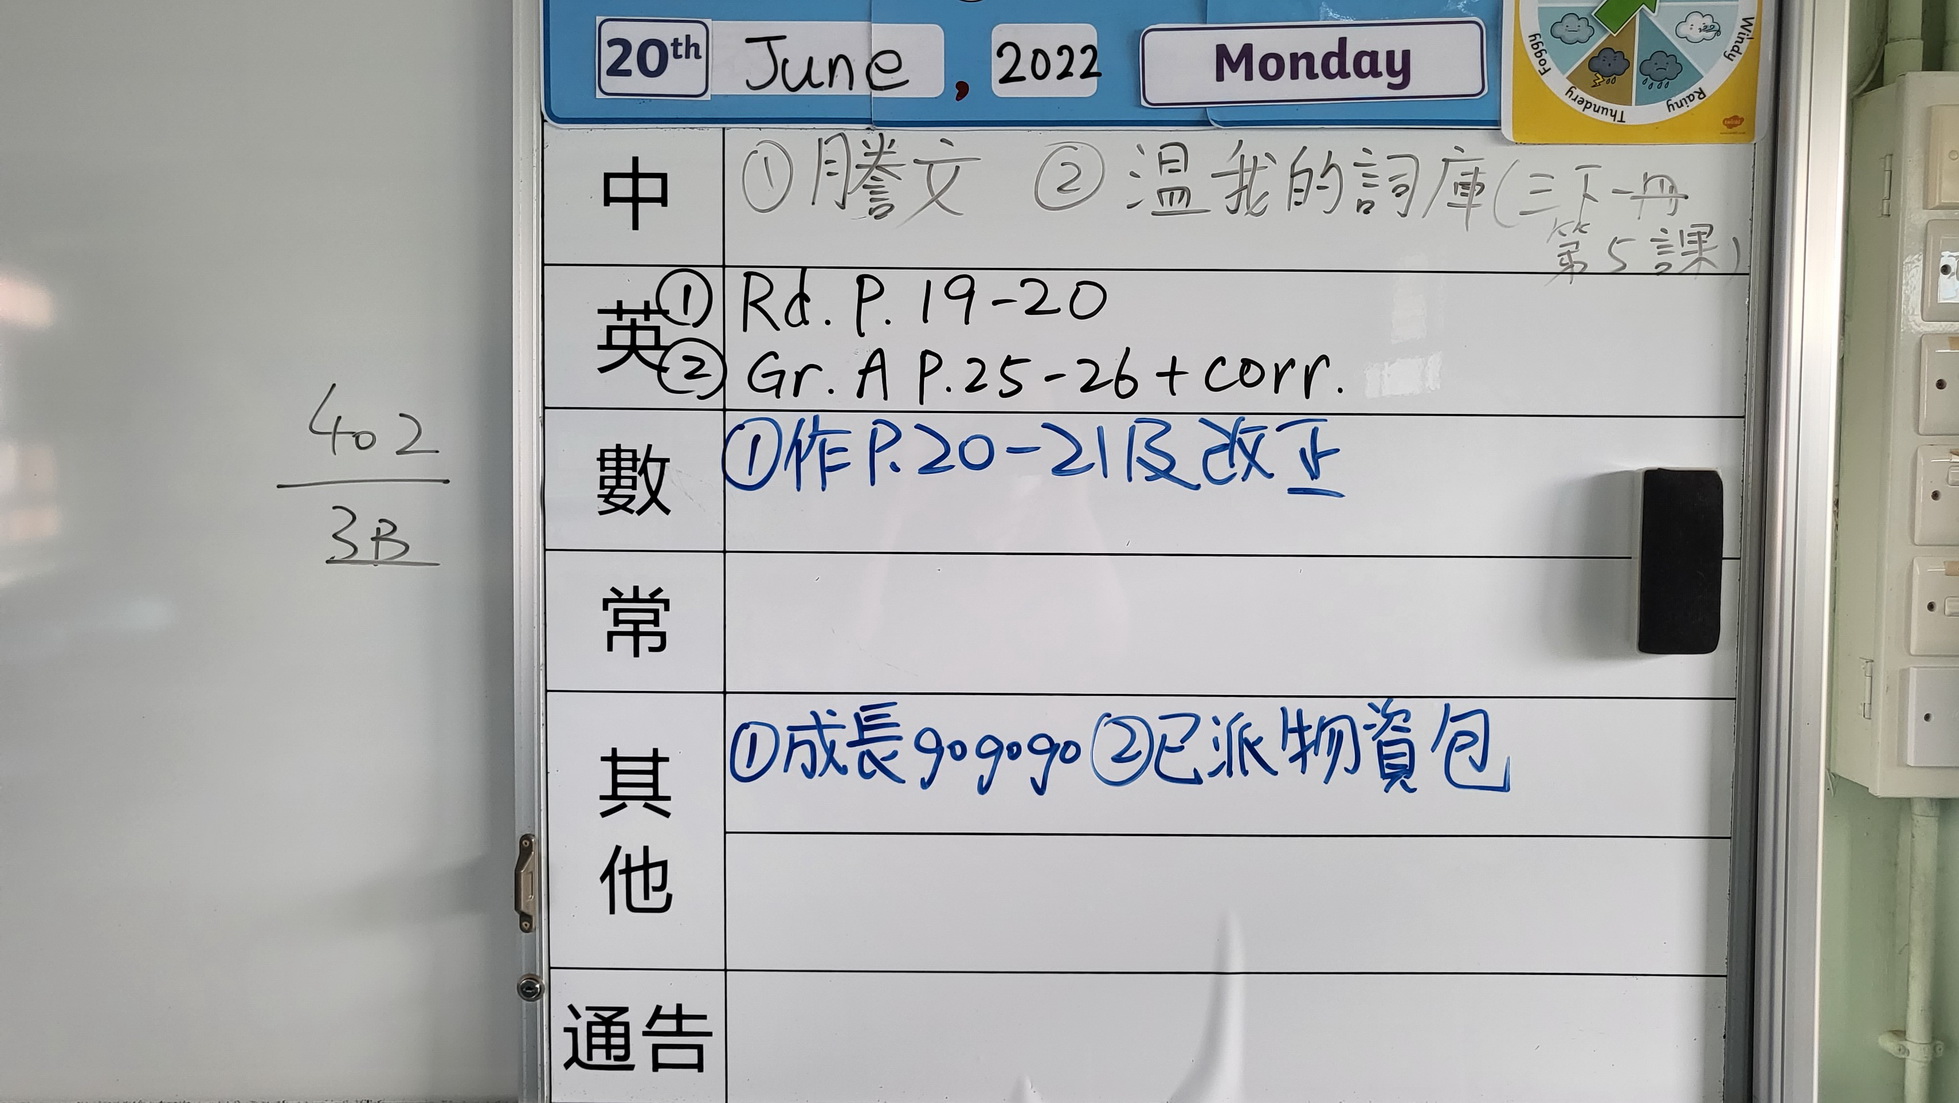 20th June, 2022 Monday
Foggy Thundery Rainy Windy
中 ①謄文 ②温我的詞庫(三下一冊
第5課)
英 ① Rd. P. 19-20
② Gr. A P.25-26 + corr.
數 ①作P.20-21及改正
402
3B
常
其他 ①成長gogogo ②已派物資包
通告